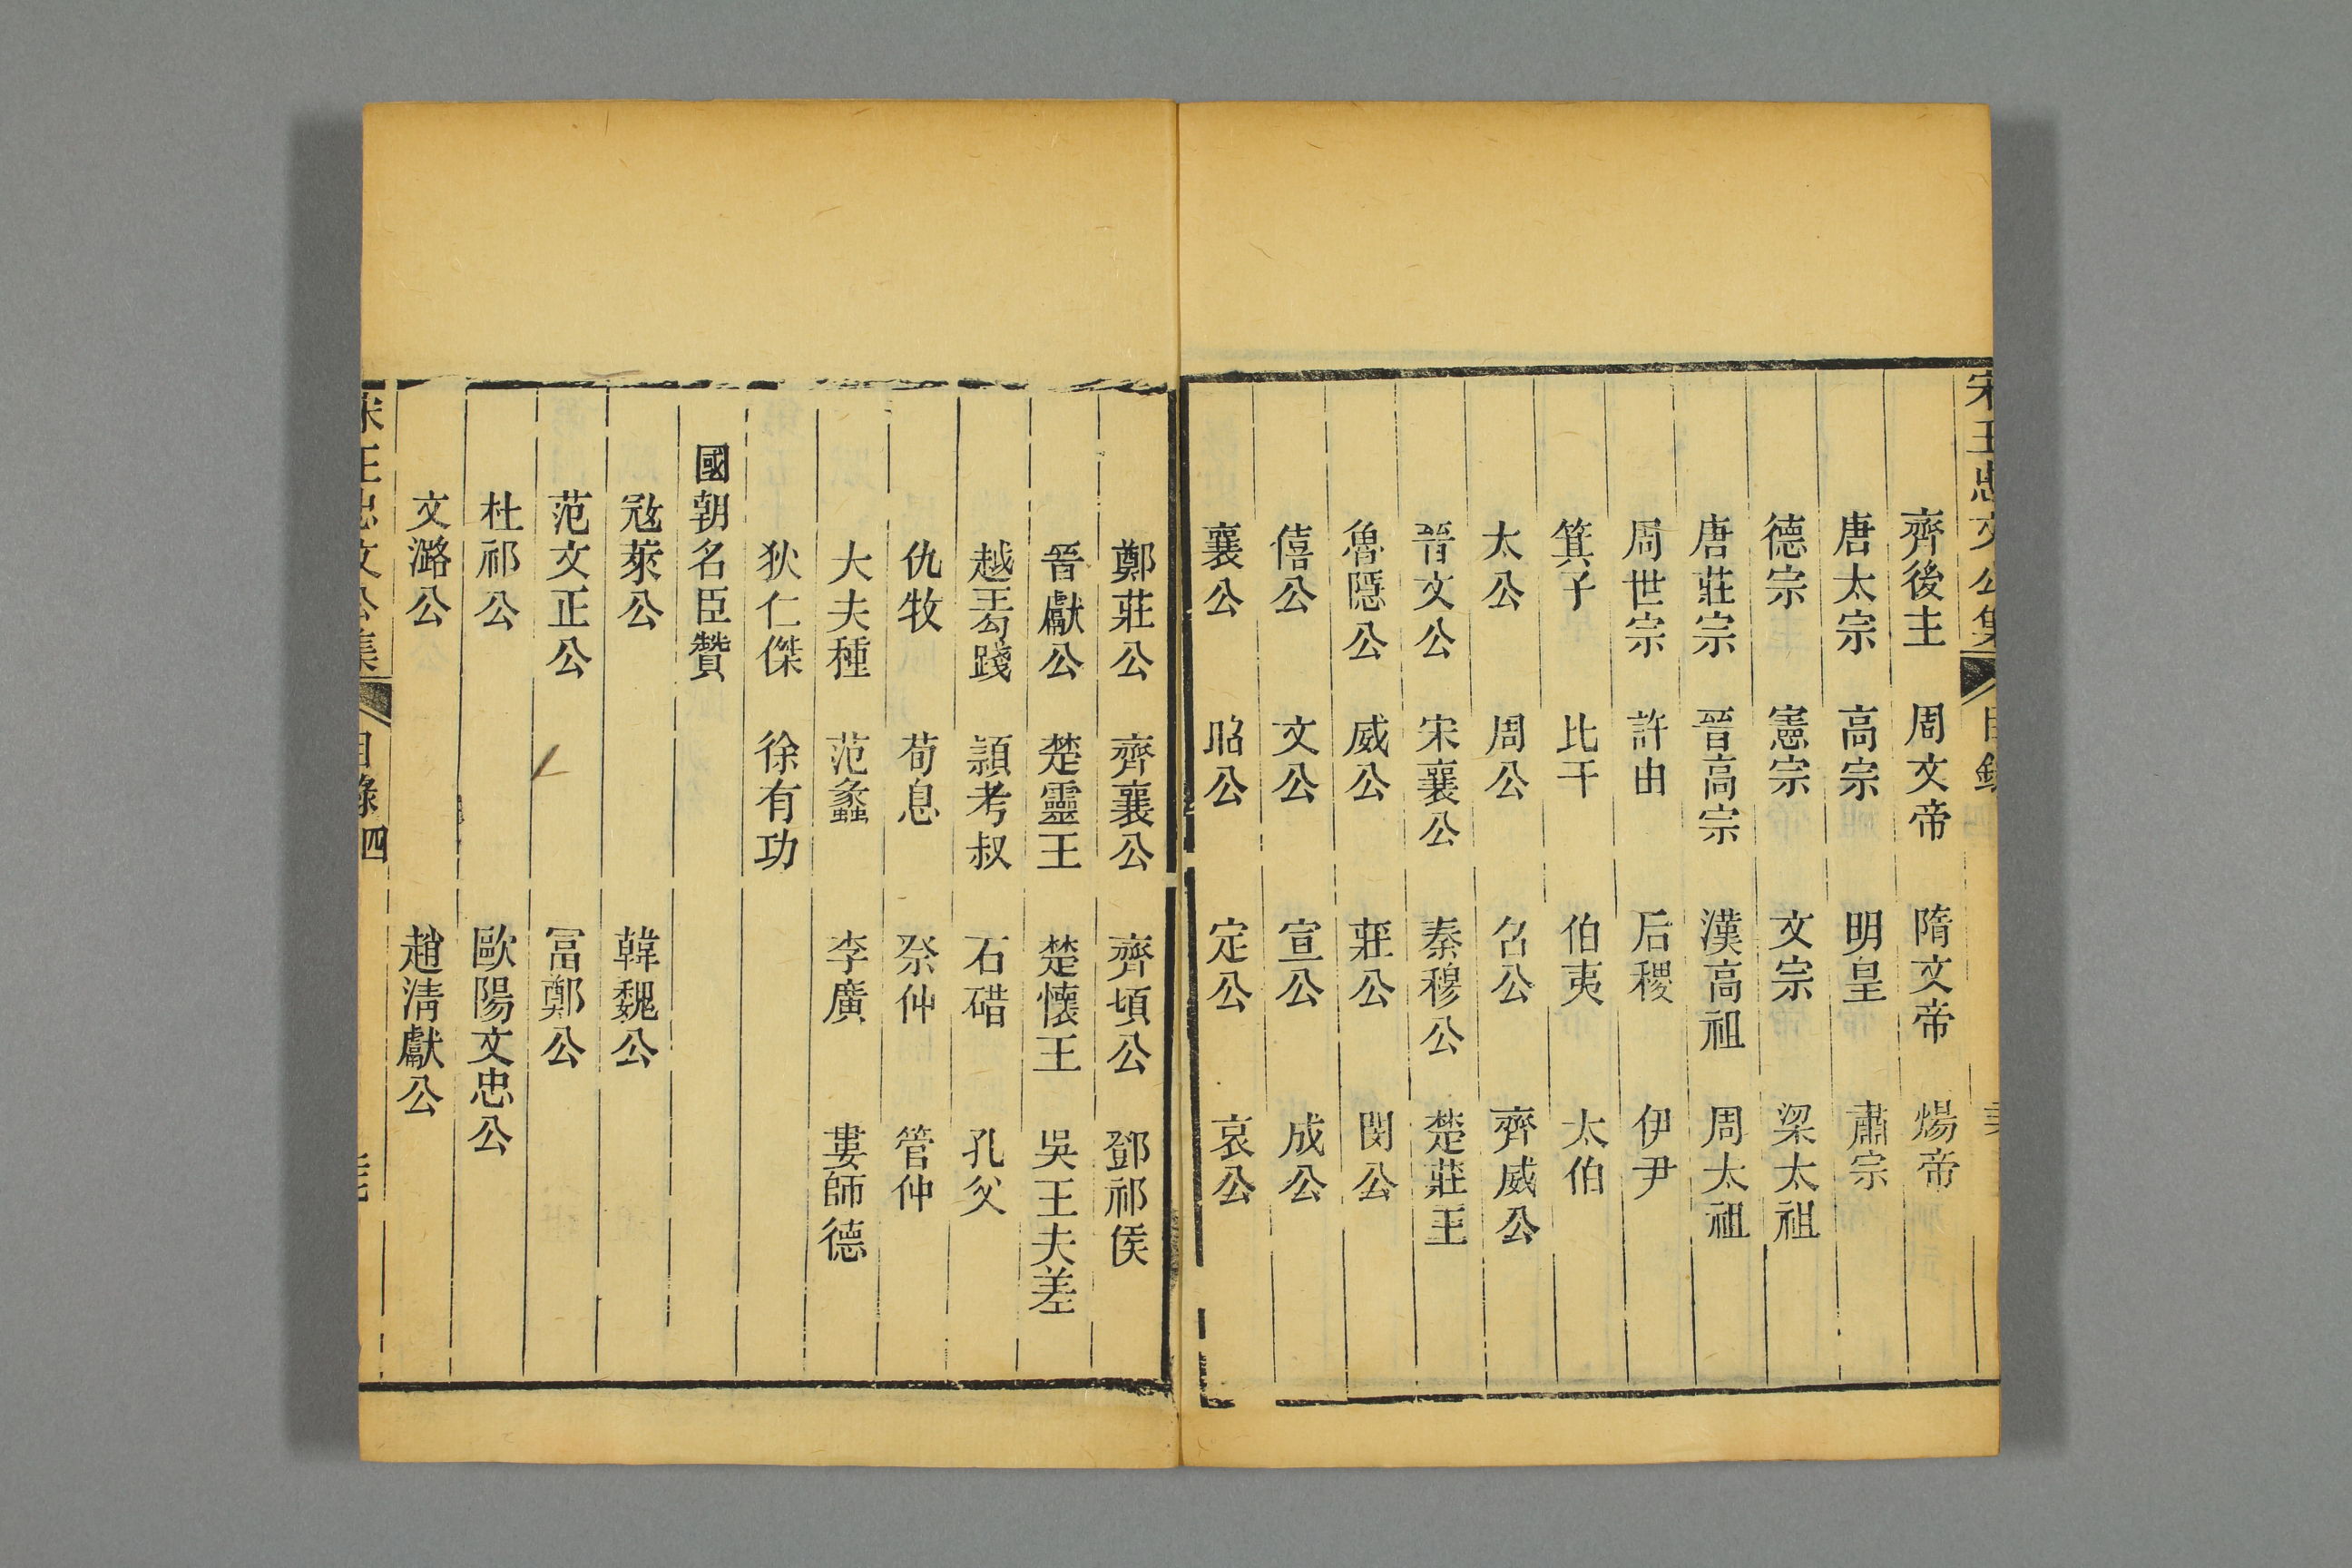 宋王忠文公集 目錄
齊後主 周文帝 隋文帝 煬帝
唐太宗 高宗 明皇 肅宗
德宗 憲宗 文宗 梁太祖
唐莊宗 晉高宗 漢高祖 周太祖
周世宗 許由 后稷 伊尹
箕子 比干 伯夷 太伯
太公 周公 召公 齊威公
晉文公 宋襄公 秦穆公 楚莊王
魯隱公 威公 莊公 閔公
僖公 文公 宣公 成公
襄公 昭公 定公 哀公
鄭莊公 齊襄公 齊頃公 鄧祁侯
晉獻公 楚靈王 楚懷王 吳王夫差
越王勾踐 潁考叔 石碏 孔父
仇牧 荀息 祭仲 管仲
大夫種 范蠡 李廣 婁師德
狄仁傑 徐有功
國朝名臣贊
寇萊公 韓魏公
范文正公 富鄭公
杜祁公 歐陽文忠公
文潞公 趙淸獻公
宋王忠文公集 目錄四